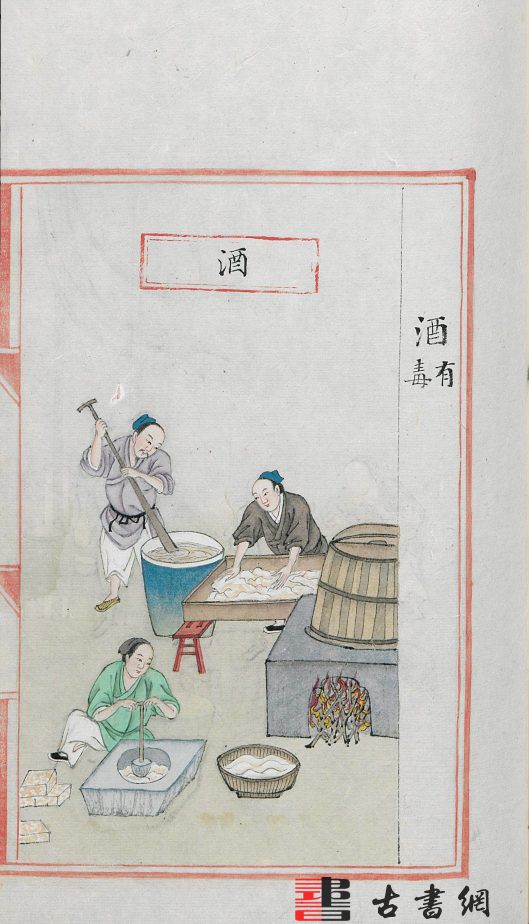 酒
有毒
酒
古書網